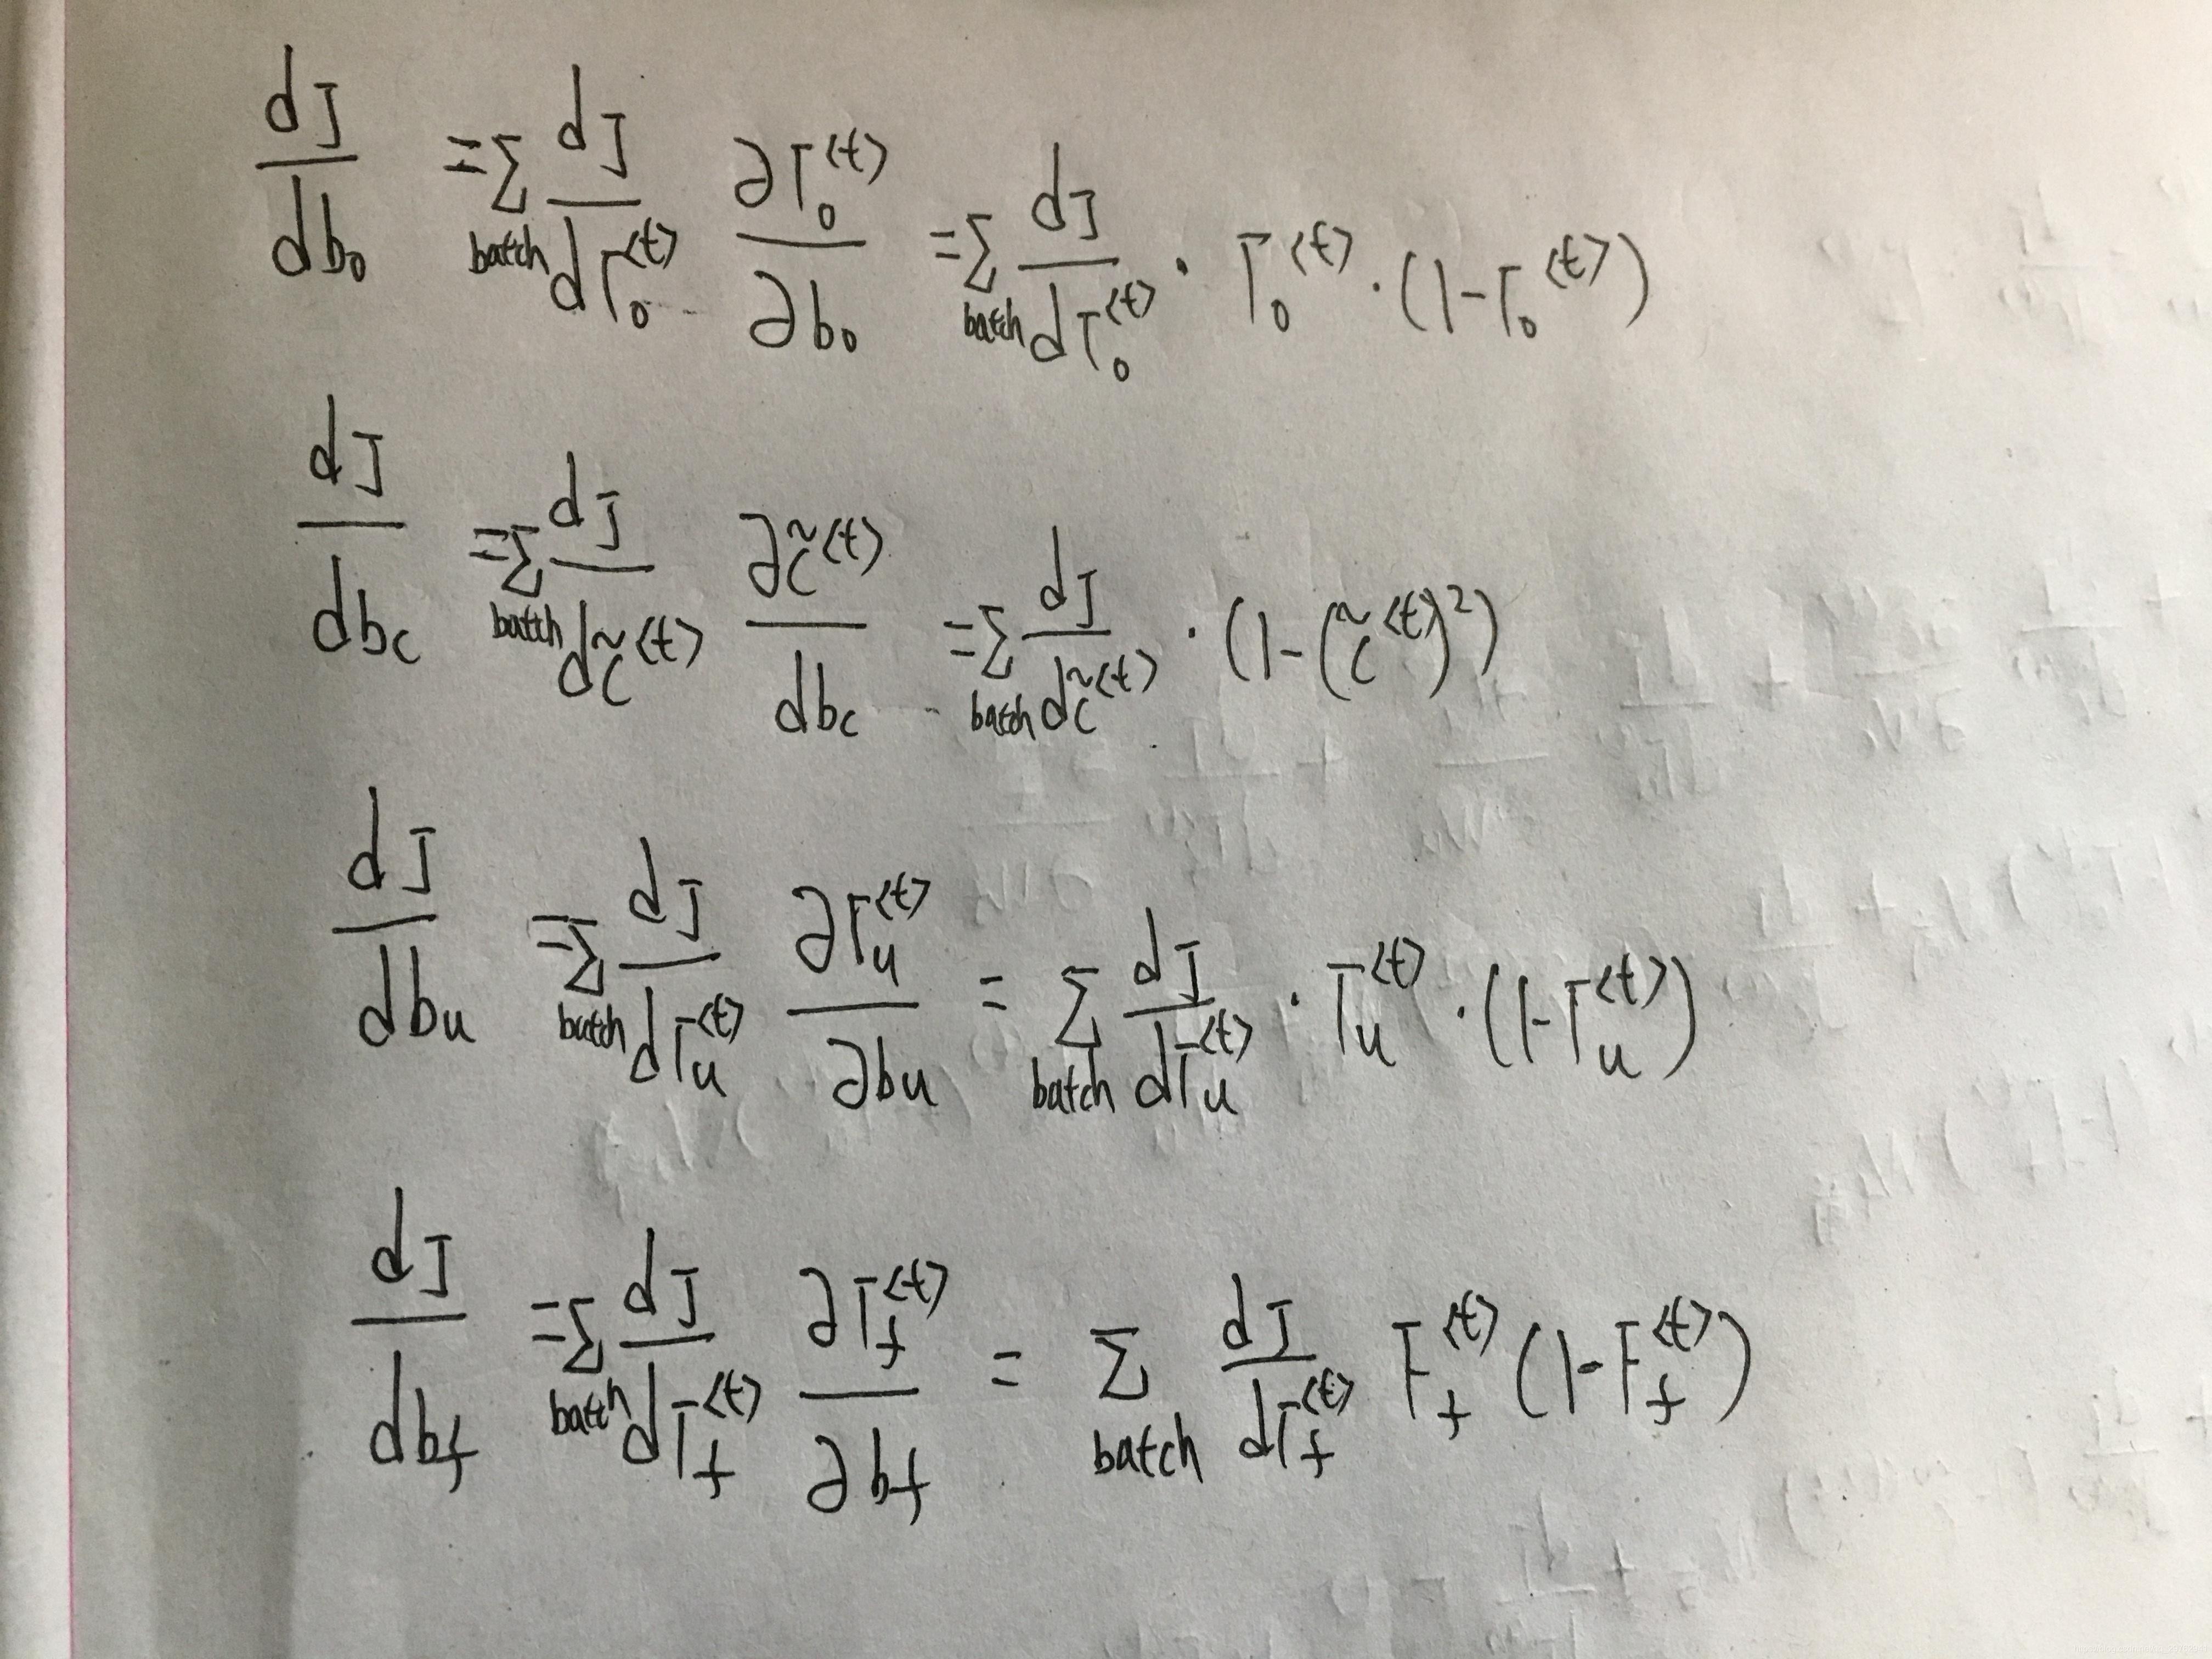 dJ/db₀ = Σ_batch dJ/dΓ₀^⟨t⟩ ∂Γ₀^⟨t⟩/∂b₀ = Σ_batch dJ/dΓ₀^⟨t⟩ · Γ₀^⟨t⟩ · (1-Γ₀^⟨t⟩)
dJ/db_c = Σ_batch dJ/dc̃^⟨t⟩ ∂c̃^⟨t⟩/db_c = Σ_batch dJ/dc̃^⟨t⟩ · (1-(c̃^⟨t⟩)²)
dJ/db_u = Σ_batch dJ/dΓ_u^⟨t⟩ ∂Γ_u^⟨t⟩/∂b_u = Σ_batch dJ/dΓ_u^⟨t⟩ · Γ_u^⟨t⟩ · (1-Γ_u^⟨t⟩)
dJ/db_f = Σ_batch dJ/dΓ_f^⟨t⟩ ∂Γ_f^⟨t⟩/∂b_f = Σ_batch dJ/dΓ_f^⟨t⟩ Γ_f^⟨t⟩ (1-Γ_f^⟨t⟩)